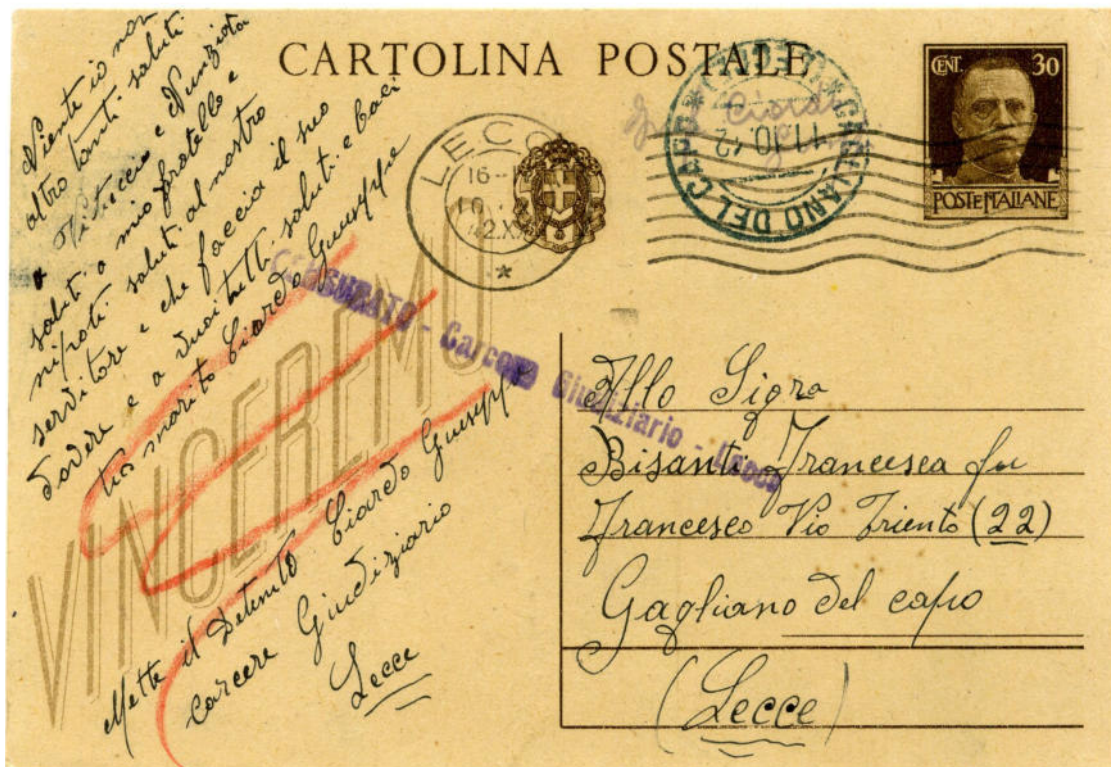 CARTOLINA POSTALE
CENT. 30
POSTE ITALIANE
GAGLIANO DEL CAPO
11.10.42
LECCE
16-
10.
42.XX
VINCEREMO
CENSURATO - Carcere Giudiziario - Lecce
Niente io non
altro tanti saluti
e Nunziata
saluti a mio fratello e
nipoti saluti al nostro
servitore e che faccia il suo
dovere e a voi tutti saluti e baci
tuo marito Ciardo Giuseppe
Mette il Detenuto Ciardo Giuseppe
carcere Giudiziario
Lecce
Alla Sigra
Bisanti Francesca fu
Francesco Via Triento (22)
Gagliano del capo
(Lecce)